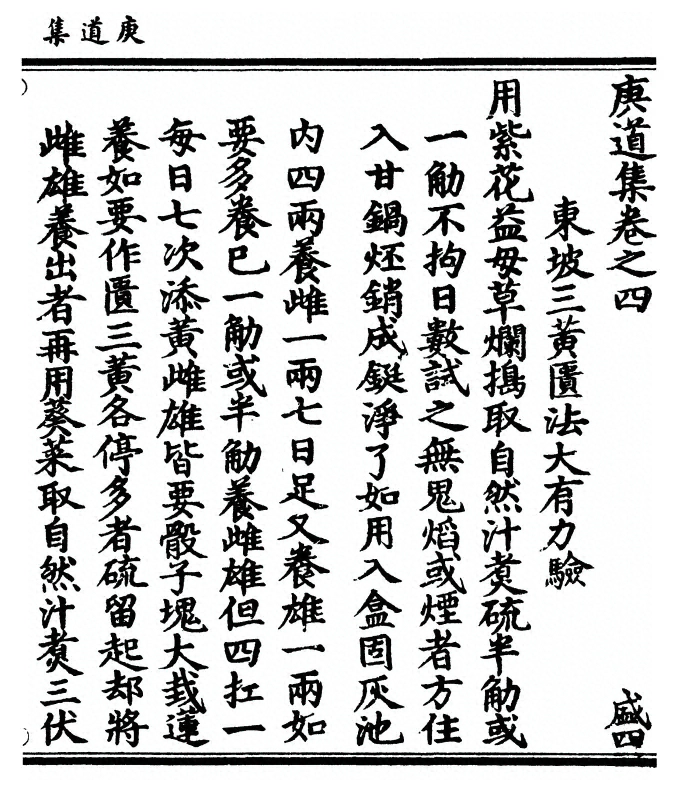 庚道集
庚道集卷之四 盛四
東坡三黃匱法大有力驗
用紫花益母草爛搗取自然汁煑硫半觔或
一觔不拘日數試之無鬼焰或煙者方住
入甘鍋烀銷成鋌淨了如用入盒固灰池
内四兩養雌一兩七日足又養雄一兩如
要多養巳一觔或半觔養雌雄但四扛一
每日七次添黃雌雄皆要骰子塊大栽蓮
養如要作匱三黃各停多者硫留起却將
雌雄養出者再用葵菜取自然汁煑三伏